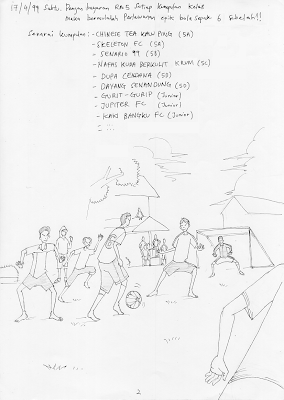 17/4/99 Sabtu. Dengan bayaran RM5 Setiap Kumpulan Kelas
maka bermulalah Perlawanan epik bola sepak 6 Sebelah!!
Senarai Kumpulan: - CHINESE TEA KAW PING (5A)
- SKELETON FC (5A)
- SENARIO 99 (5B)
- NAFAS KUDA BERKULIT KRUM (5C)
- DUPA CENDANA (5D)
- DAYANG SENANDUNG (5D)
- GURIT-GURIP (Junior)
- JUPITER FC (Junior)
- KAKI BANGKU FC (Junior)
2